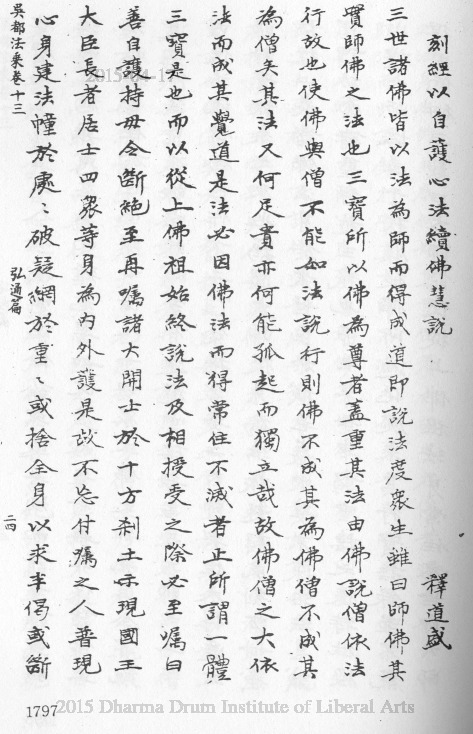 刻經以自護心法續佛慧說　釋道盛
三世諸佛皆以法為師而得成道即說法度眾生雖曰師佛其
實師佛之法也三寶所以佛為尊者蓋重其法由佛說僧依法
行故也使佛與僧不能如法說行則佛不成其為佛僧不成其
為僧矣其法又何足貴亦何能孤起而獨立哉故佛僧之大依
法而成其覺道是法必因佛法而得常住不滅者正所謂一體
三寶是也而以從上佛祖始終說法及相授受之際必至囑曰
善自護持毋令斷絕至再囑諸大開士於十方剎土示現國王
大臣長者居士四眾等身為內外護是故不忘付囑之人普現
心身建法幢於處〻破疑網於重〻或捨全身以求半偈或斷
吳都法乘卷十三　弘通篇　二四
1797
2015 Dharma Drum Institute of Liberal Arts